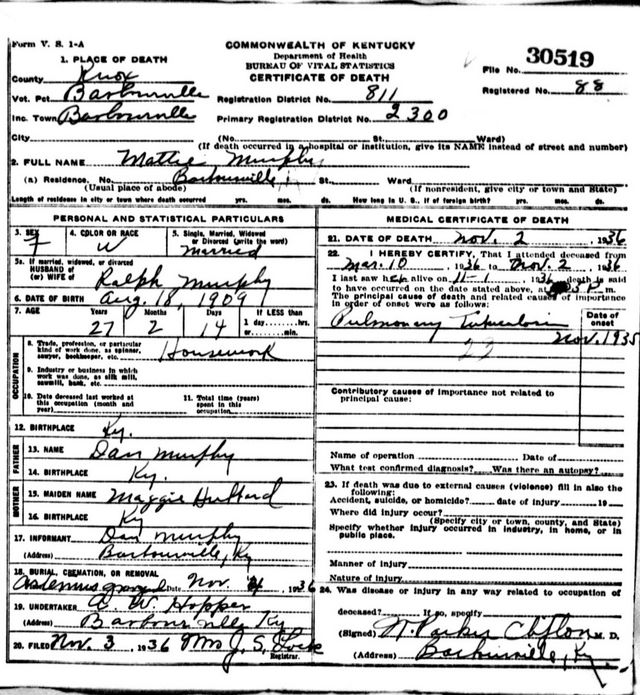 Form V. S. 1-A
COMMONWEALTH OF KENTUCKY
Department of Health
BUREAU OF VITAL STATISTICS
CERTIFICATE OF DEATH
File No. 30519
Registered No. 88
1. PLACE OF DEATH
County Knox
Vot. Pct. Barbourville
Registration District No. 811
Inc. Town Barbourville
Primary Registration District No. 2300
City (No. St. Ward)
(If death occurred in a hospital or institution, give its NAME instead of street and number)
2. FULL NAME Mattie Murphy
(a) Residence. No. Barbourville St. Ward
(Usual place of abode) (If nonresident, give city or town and State)
Length of residence in city or town where death occurred yrs. mos. ds. How long in U. S., if of foreign birth? yrs. mos. ds.
PERSONAL AND STATISTICAL PARTICULARS
3. SEX F
4. COLOR OR RACE W
5. Single, Married, Widowed or Divorced (write the word) Married
5a. If married, widowed, or divorced
HUSBAND of
(or) WIFE of Ralph Murphy
6. DATE OF BIRTH Aug. 18, 1909
7. AGE Years 27 Months 2 Days 14 If LESS than 1 day hrs. or min.
OCCUPATION
8. Trade, profession, or particular kind of work done, as spinner, sawyer, bookkeeper, etc. Housework
9. Industry or business in which work was done, as silk mill, sawmill, bank, etc.
10. Date deceased last worked at this occupation (month and year)
11. Total time (years) spent in this occupation
12. BIRTHPLACE Ky.
FATHER
13. NAME Dan Murphy
14. BIRTHPLACE Ky.
MOTHER
15. MAIDEN NAME Maggie Hubbard
16. BIRTHPLACE Ky
17. INFORMANT Dan Murphy
(Address) Barbourville, Ky
18. BURIAL, CREMATION, OR REMOVAL
Date Nov. 4, 1936
19. UNDERTAKER A. W. Hopper
(Address) Barbourville Ky
20. FILED Nov. 3 1936 Mrs J. S. Locke
Registrar.
MEDICAL CERTIFICATE OF DEATH
21. DATE OF DEATH Nov. 2, 1936
22. I HEREBY CERTIFY, That I attended deceased from
Mar. 10, 1936 to Nov. 2, 1936
I last saw her alive on 11-1, 1936 death is said
to have occurred on the date stated above, at m.
The principal cause of death and related causes of importance
in order of onset were as follows:
Date of onset
Pulmonary Tuberculosis Nov. 1935
Contributory causes of importance not related to
principal cause:
Name of operation Date of
What test confirmed diagnosis? Was there an autopsy?
23. If death was due to external causes (violence) fill in also the
following:
Accident, suicide, or homicide? date of injury 19
Where did injury occur?
(Specify city or town, county, and State)
Specify whether injury occurred in industry, in home, or in
public place.
Manner of injury
Nature of injury
24. Was disease or injury in any way related to occupation of
deceased? If so, specify
(Signed) Parker M. D.
(Address) Barbourville, Ky.